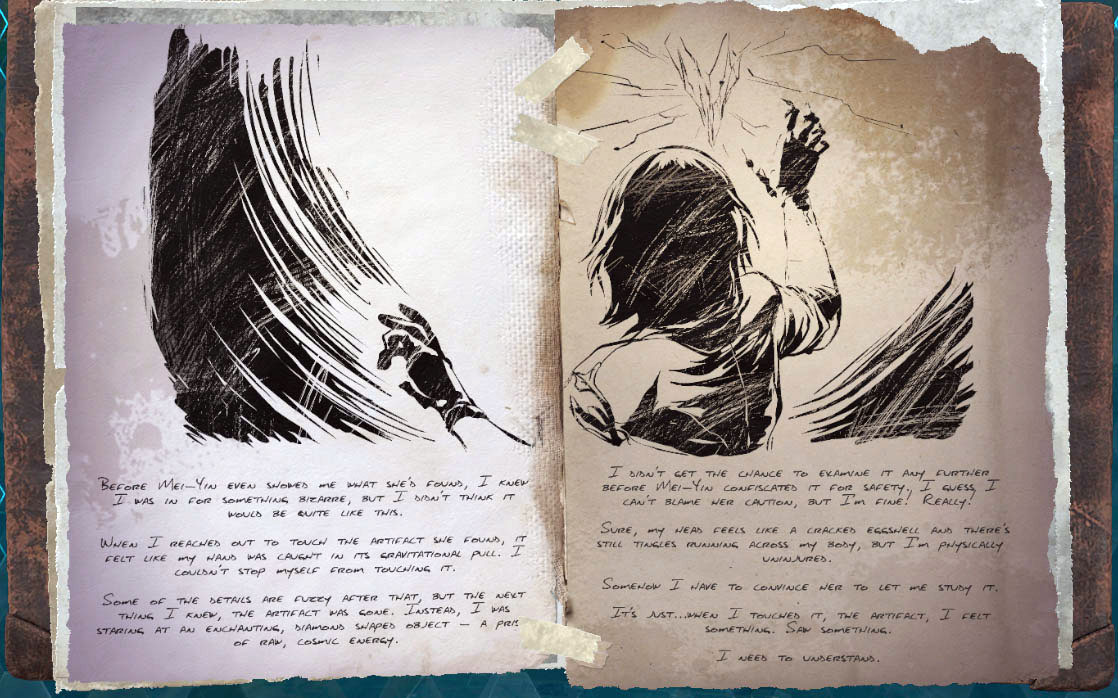 BEFORE MEI-YIN EVEN SHOWED ME WHAT SHE'D FOUND, I KNEW
I WAS IN FOR SOMETHING BIZARRE, BUT I DIDN'T THINK IT
WOULD BE QUITE LIKE THIS.
WHEN I REACHED OUT TO TOUCH THE ARTIFACT SHE FOUND, IT
FELT LIKE MY HAND WAS CAUGHT IN ITS GRAVITATIONAL PULL. I
COULDN'T STOP MYSELF FROM TOUCHING IT.
SOME OF THE DETAILS ARE FUZZY AFTER THAT, BUT THE NEXT
THING I KNEW, THE ARTIFACT WAS GONE. INSTEAD, I WAS
STARING AT AN ENCHANTING, DIAMOND SHAPED OBJECT – A
OF RAW, COSMIC ENERGY.
I DIDN'T GET THE CHANCE TO EXAMINE IT ANY FURTHER
BEFORE MEI-YIN CONFISCATED IT FOR SAFETY. I GUESS I
CAN'T BLAME HER CAUTION, BUT I'M FINE! REALLY!
SURE, MY HEAD FEELS LIKE A CRACKED EGGSHELL AND THERE'S
STILL TINGLES RUNNING ACROSS MY BODY, BUT I'M PHYSICALLY
UNINJURED.
SOMEHOW I HAVE TO CONVINCE HER TO LET ME STUDY IT.
IT'S JUST...WHEN I TOUCHED IT, THE ARTIFACT, I FELT
SOMETHING. SAW SOMETHING.
I NEED TO UNDERSTAND.